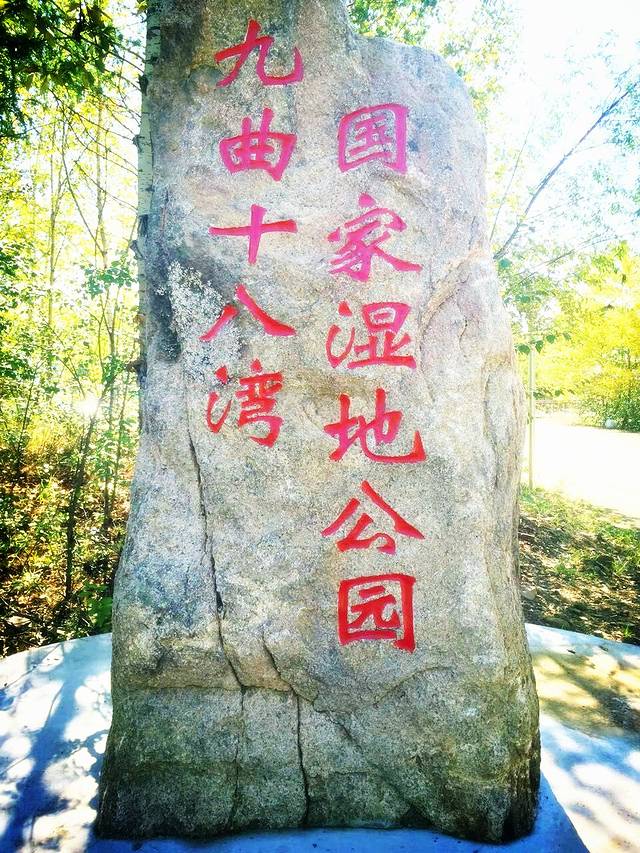 九曲十八湾
国家湿地公园